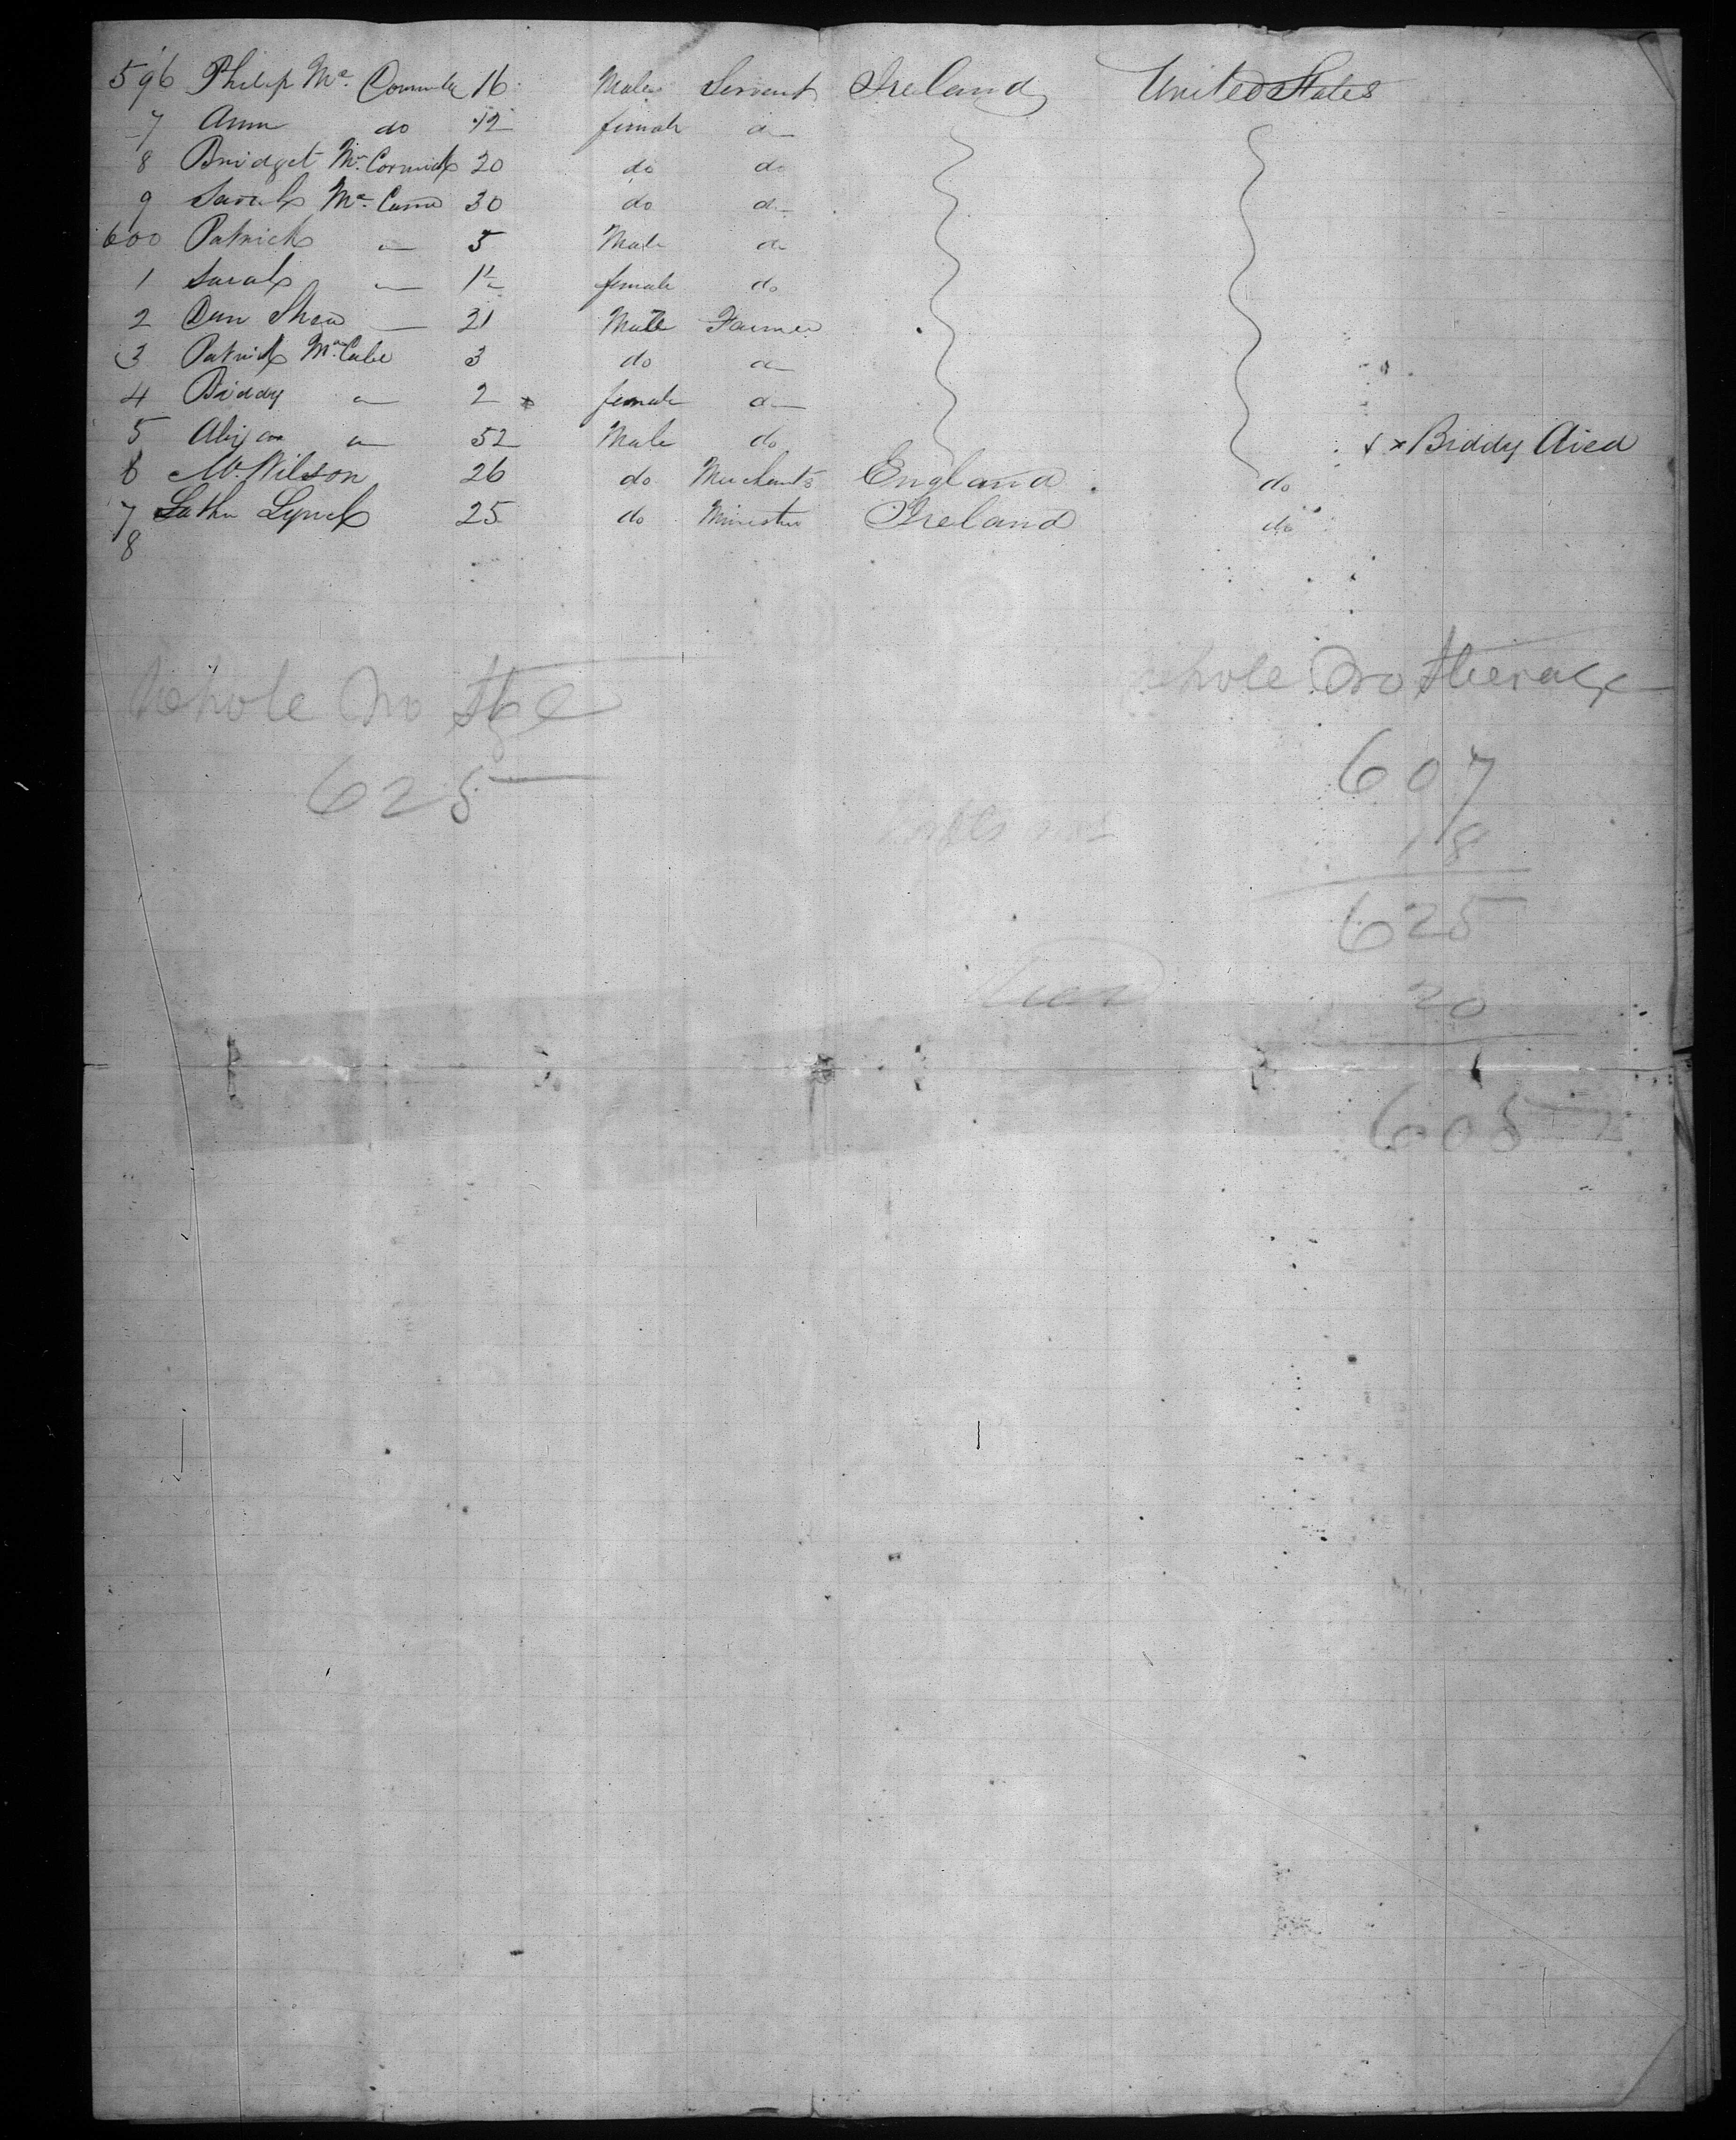 596 Philip Mc 16 Male Servant Ireland United States
7 Ann do 12 female do
8 Bridget Mc Cormick 20 do do
9 Sarah Mc 30 do do
600 Patrick do 5 Male do
1 Sarah do female do
2 Dan Shea 21 Male Farmer
3 Patrick Mc Cabe 3 do do
4 Biddy do 2 x female do
5 do 52 Male do x Biddy died
6 Wilson 26 do Merchants England do
7 Lynch 25 do Minister Ireland do
8
Whole No Stge
625
whole No Steerage
607
18
625
died 20
605